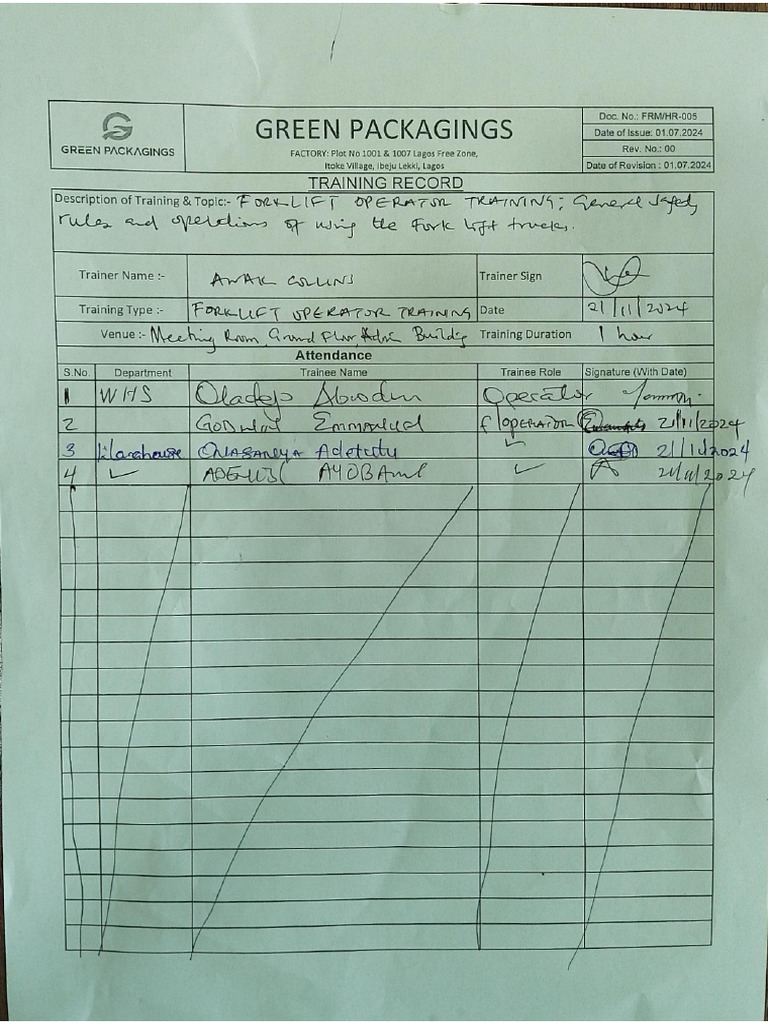 GREEN PACKAGINGS
GREEN PACKAGINGS
FACTORY: Plot No 1001 & 1007 Lagos Free Zone,
Itoke Village, Ibeju Lekki, Lagos
Doc. No.: FRM/HR-005
Date of Issue: 01.07.2024
Rev. No.: 00
Date of Revision : 01.07.2024
TRAINING RECORD
Description of Training & Topic:- FORKLIFT OPERATOR TRAINING; General Safety
rules and operations of using the Fork lift trucks.
Trainer Name :- AWAK COLLINS Trainer Sign
Training Type :- FORKLIFT OPERATOR TRAINING Date 21/11/2024
Venue :- Meeting Room, Ground Floor, Admin Building Training Duration 1 hour
Attendance
S.No. Department Trainee Name Trainee Role Signature (With Date)
1 WHS Oladejo Operator
2 GODWIN EMMANUEL F/OPERATOR 21/11/2024
3 Warehouse Adetutu ✓ 21/11/2024
4 ✓ AYOBAMI ✓ 21/11/2024